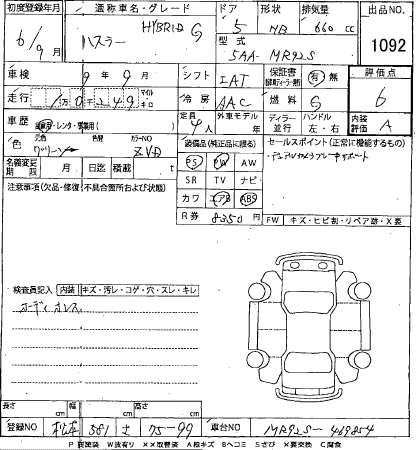 初度登録年月 通称車名・グレード ドア 形状 排気量 出品NO
6/9月 ハスラー HYBRID G 5 HB 660 cc 1092
型式 5AA-MR92S
車検 9年9月 シフト IAT 保証書 有 無 評価点
走行 マイル キロ 冷房 AAC 燃料 G 6
車歴 自家用・レンタ・営業用( ) 定員 4人 外車モデル年 ディーラー 並行 ハンドル 左・右 内装評価 A
色 元色 グリーン 色替 カラーNO ZVD 装備品(純正品に限る) セールスポイント(正常に機能するもの)
名義変更期限 月 日迄 積載 t PS PW AW デュアルカメラブレーキサポート
注意事項(欠品・修復・不具合箇所および状態) SR TV ナビ
カワ エアB ABS
R券 8350円 FW キズ・ヒビ・リペア跡・X要
検査員記入 内装 キズ・汚レ・コゲ・穴・スレ・キレ
オーディオレス
長さ cm 幅 cm 高さ cm
登録NO 松本 581 さ 75-99 車台NO MR92S-469854